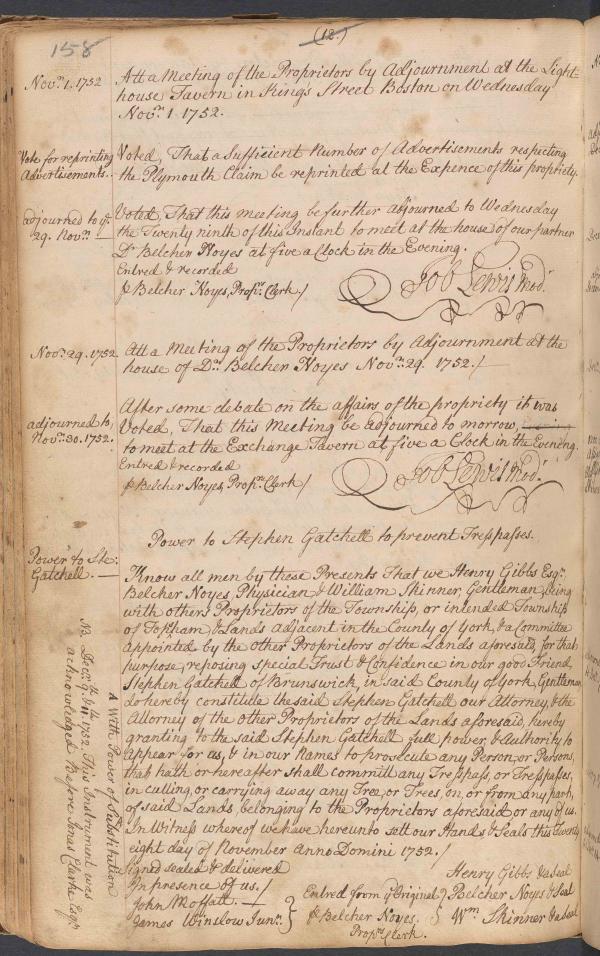 158
(12.)
Novr. 1. 1752
Att a Meeting of the Proprietors by Adjournment at the Light=
house Tavern in King's Street Boston on Wednesday
Novr. 1. 1752.
Vote for reprinting
Advertisements.
Voted, That a Sufficient Number of Advertisements respecting
the Plymouth Claim be reprinted at the Expence of this propriety.
adjourned to ye
29. Novr.
Voted, That this meeting be further adjourned to Wednesday
the Twenty ninth of this Instant to meet at the house of our partner
Dr Belcher Noyes at five a Clock in the Evening.
Entred & recorded
p Belcher Noyes, Propr. Clerk/
Job Lewis Modr.
Novr. 29. 1752
Att a Meeting of the Proprietors by Adjournment at the
house of Dr. Belcher Noyes Novr. 29. 1752./
After some debate on the affairs of the propriety it was
adjourned to
Novr. 30. 1752.
Voted, That this Meeting be adjourned to morrow,
to meet at the Exchange Tavern at five a Clock in the Evening.
Entred & recorded
p Belcher Noyes, Propr. Clerk/
Job Lewis Modr.
Power to Stephen Gatchell to prevent Tresspasses.
Power to Ste:
Gatchell.
Know all men by these Presents That we Henry Gibbs Esqr.
Belcher Noyes, Physician, & William Skinner, Gentleman, being
with others Proprietors of the Township, or intended Township
of Topsham, & Lands adjacent in the County of York, & a Committee
appointed by the other Proprietors of the Lands aforesaid, for that
purpose, reposing special Trust & Confidence in our good Friend,
Stephen Gatchell of Brunswick, in said County of York, Gentleman
do hereby constitute the said Stephen Gatchell our Attorney, & the
Attorney of the other Proprietors of the Lands aforesaid, hereby
granting to the said Stephen Gatchell full power, & Authority to
appear for us, & in our Names to prosecute any Person, or Persons,
that hath or hereafter shall committ any Tresspass, or Tresspasses,
in cutting, or carrying away any Tree, or Trees, on, or from any part,
of said Lands, belonging to the Proprietors aforesaid, or any of us.
In Witness whereof we have hereunto sett our Hands & Seals this Twenty
eight day of November Anno Domini 1752./
Signed sealed & delivered
In presence of us./
John Moffatt.
James Winslow Junr.
Entred from ye Original
p Belcher Noyes.
Proprs Clerk.
Henry Gibbs & a Seal
Belcher Noyes & Seal
Wm Skinner & a Seal
A With Power of Substitution
NB. Decr. 9th 1752. This Instrument was
acknowledged Before Jonas Clarke Esqr.